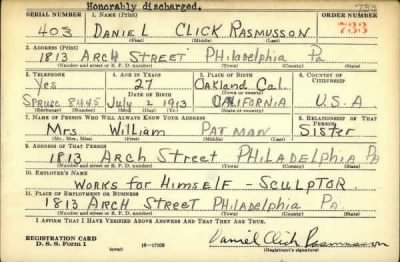 Honorably discharged.
793
SERIAL NUMBER 1. NAME (Print) ORDER NUMBER
403 DANIEL CLICK RASMUSSON 733
(First) (Middle) (Last)
2. ADDRESS (Print)
1813 ARCH STREET PHILADELPHIA PA
(Number and street or R. F. D. number) (Town) (County) (State)
3. TELEPHONE 4. AGE IN YEARS 5. PLACE OF BIRTH 6. COUNTRY OF CITIZENSHIP
Yes 27 Oakland Cal.
DATE OF BIRTH (Town or county)
Spruce 8445 July 2 1913 CALIFORNIA U.S.A
(Exchange) (Number) (Mo.) (Day) (Yr.) (State or country)
7. NAME OF PERSON WHO WILL ALWAYS KNOW YOUR ADDRESS 8. RELATIONSHIP OF THAT PERSON
Mrs William PATMAN Sister
(Mr., Mrs., Miss) (First) (Middle) (Last)
9. ADDRESS OF THAT PERSON
1813 Arch Street PHILADELPHIA PA
(Number and street or R. F. D. number) (Town) (County) (State)
10. EMPLOYER'S NAME
WORKS FOR HIMSELF - SCULPTOR
11. PLACE OF EMPLOYMENT OR BUSINESS
1813 ARCH STREET PHILADELPHIA PA.
(Number and street or R. F. D. number) (Town) (County) (State)
I AFFIRM THAT I HAVE VERIFIED ABOVE ANSWERS AND THAT THEY ARE TRUE.
REGISTRATION CARD
D. S. S. Form 1 (over) 16—17105 Daniel Click Rasmusson
(Registrant's signature)